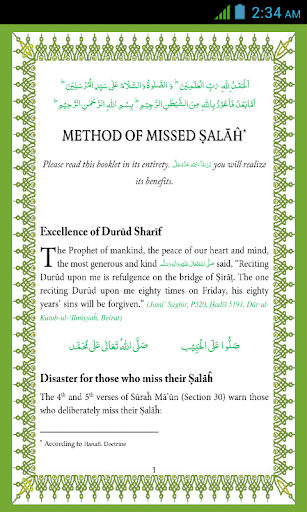 2:34 AM
اَلْحَمْدُ لِلّٰهِ رَبِّ الْعٰلَمِيْنَ وَ الصَّلٰوةُ وَالسَّلَامُ عَلٰى سَيِّدِ الْمُرْسَلِيْنَ ط
اَمَّا بَعْدُ فَاَعُوْذُ بِاللّٰهِ مِنَ الشَّيْطٰنِ الرَّجِيْمِ ط بِسْمِ اللّٰهِ الرَّحْمٰنِ الرَّحِيْمِ ط
METHOD OF MISSED ṢALĀĤ*
Please read this booklet in its entirety. اِنْ شَآءَ اللّٰه عَزَّوَجَلَّ you will realize
its benefits.
Excellence of Durūd Sharīf
The Prophet of mankind, the peace of our heart and mind,
the most generous and kind صَلَّى اللهُ تَعَالٰى عَلَيْهِ وَاٰلِهٖ وَسَلَّم said, “Reciting
Durūd upon me is refulgence on the bridge of Ṣirāṭ. The one
reciting Durūd upon me eighty times on Friday, his eighty
years’ sins will be forgiven.” (Jami’ Saghir, P320, Hadiš 5191, Dār-ul-
Kutub-ul-‘Ilmiyyah, Beirut)
صَلُّوْا عَلَى الْحَبِيْب صَلَّى اللّٰهُ تَعَالٰى عَلٰى مُحَمَّد
Disaster for those who miss their Ṣalāĥ
The 4th and 5th verses of Sūraĥ Mā’ūn (Section 30) warn those
who deliberately miss their Ṣalāĥ:
* According to Hanafī Doctrine
1